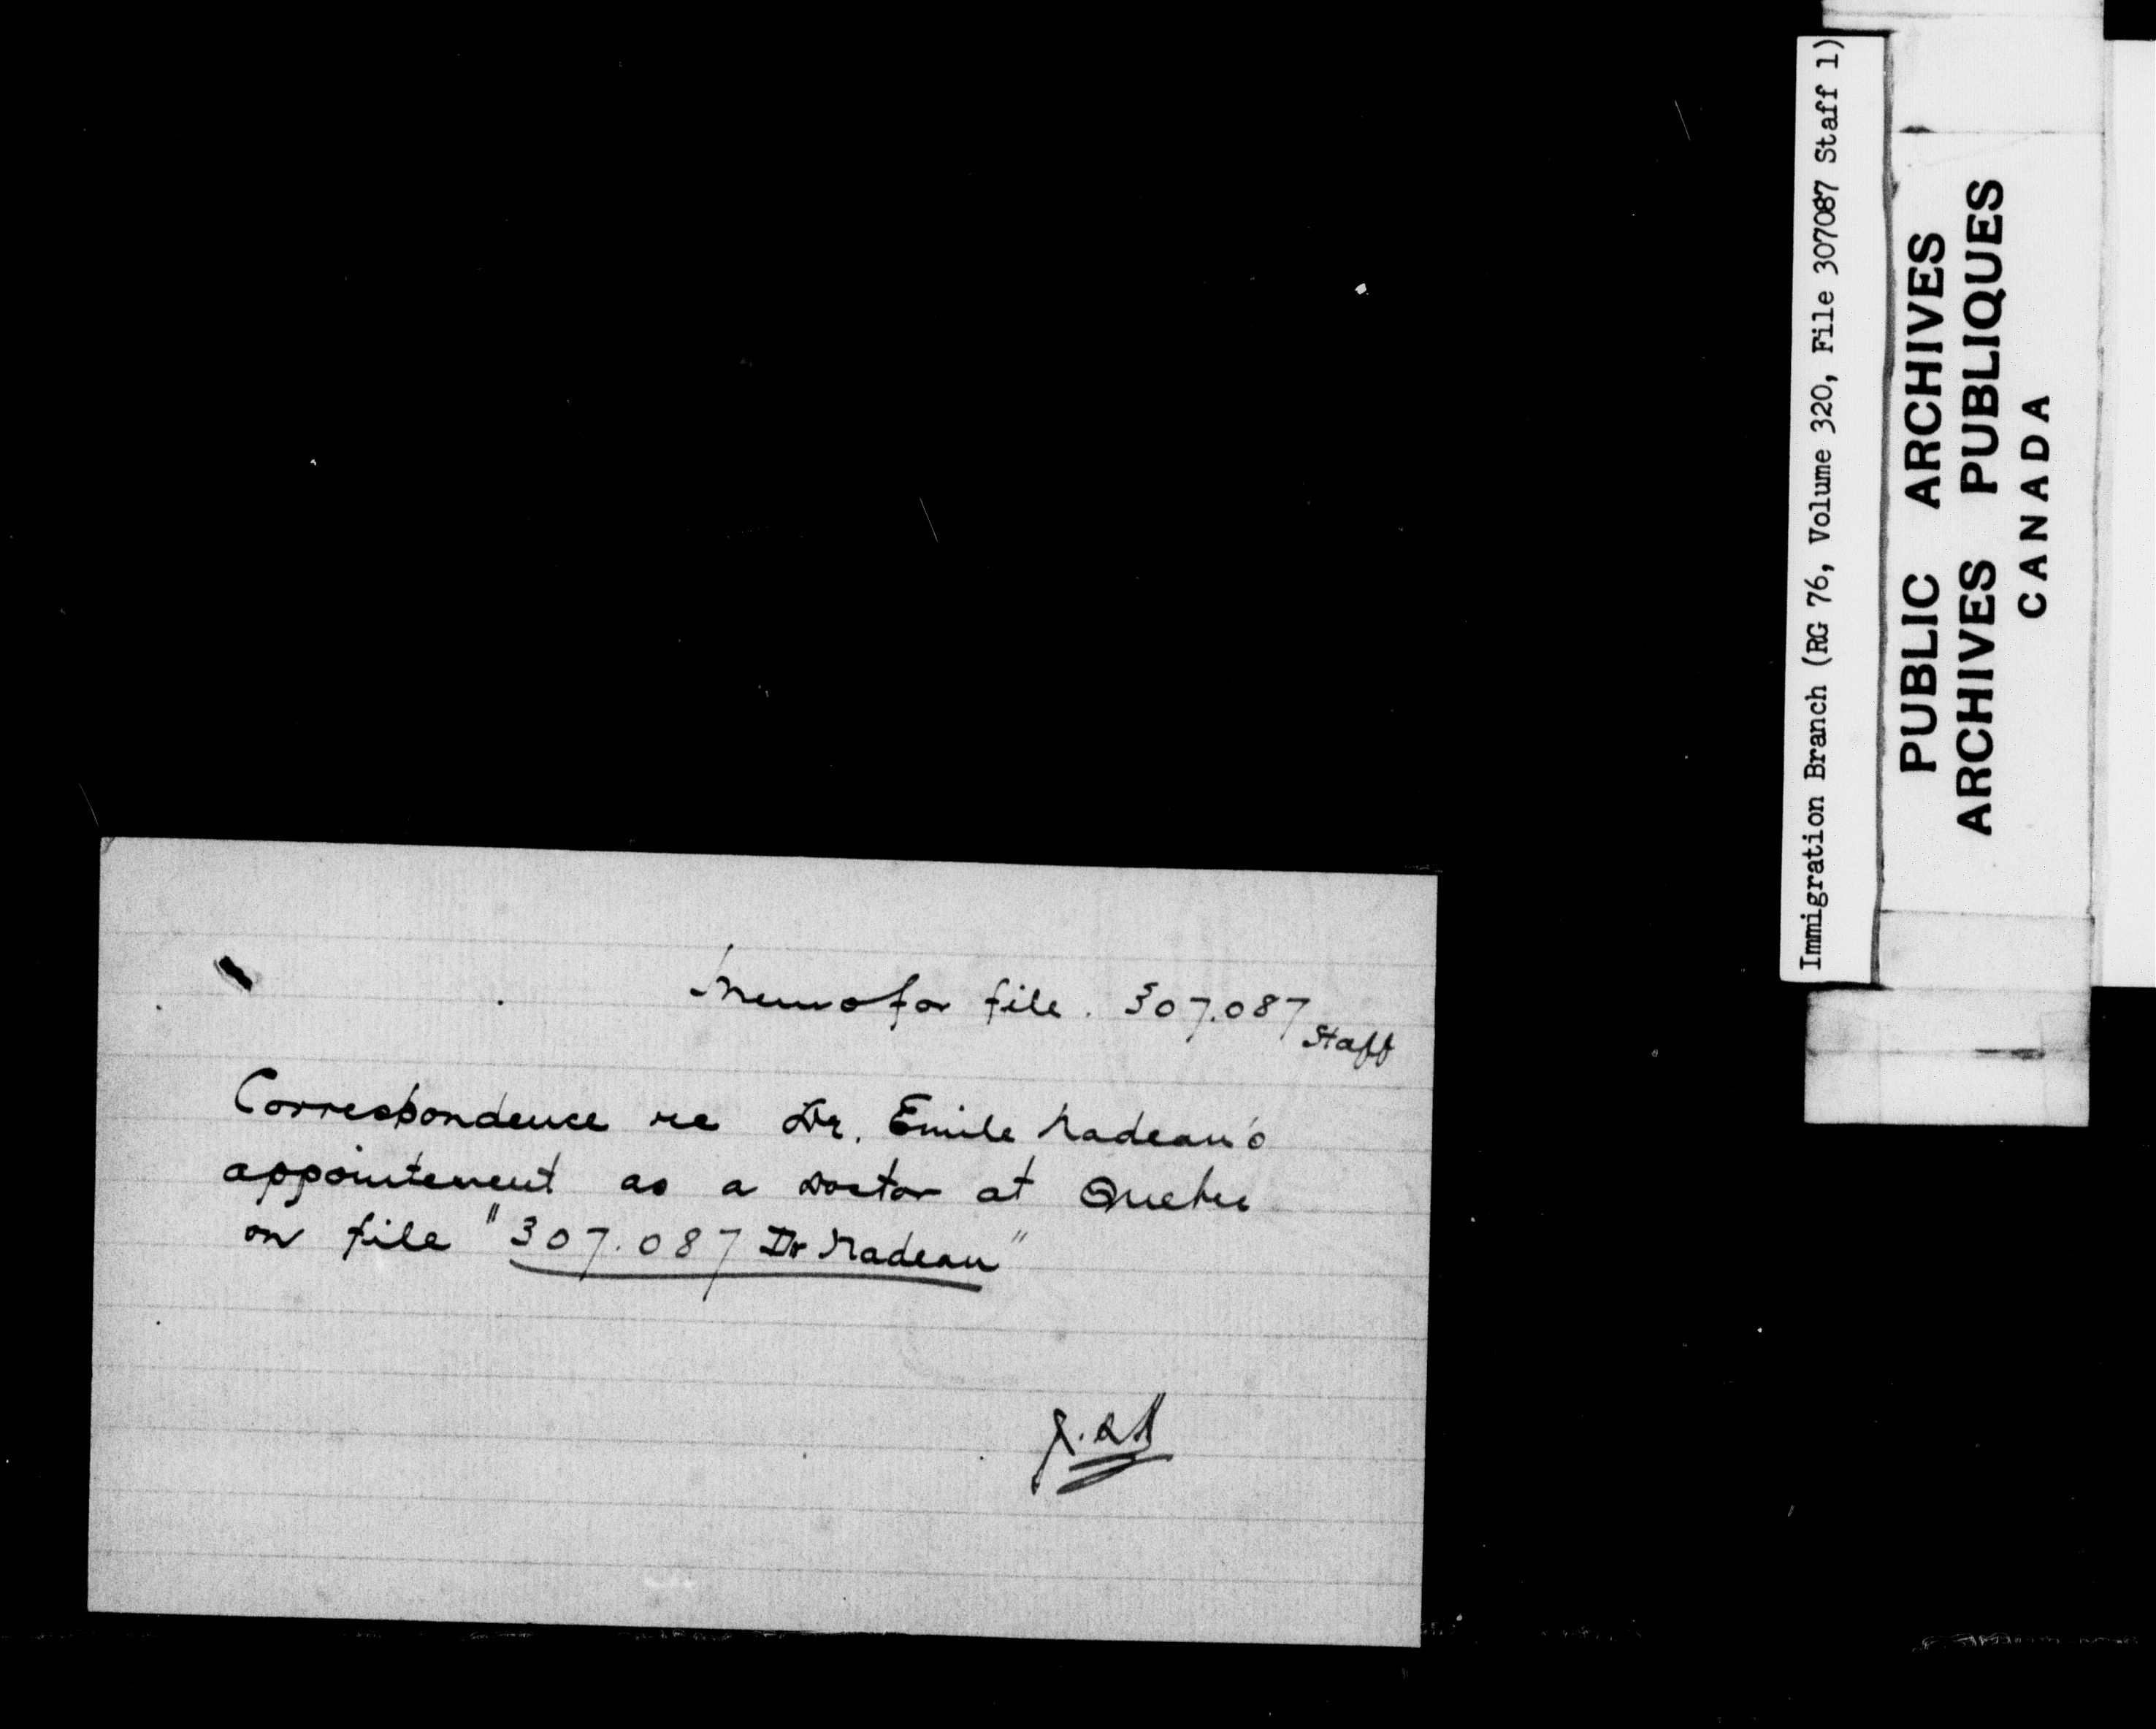 Memo for file. 307.087
Staff
Correspondence re Dr. Emile Nadeau's
appointement as a Doctor at Quebec
on file "307.087 Dr Nadeau"
Immigration Branch (RG 76, Volume 320, File 307087 Staff 1)
PUBLIC ARCHIVES
ARCHIVES PUBLIQUES
CANADA